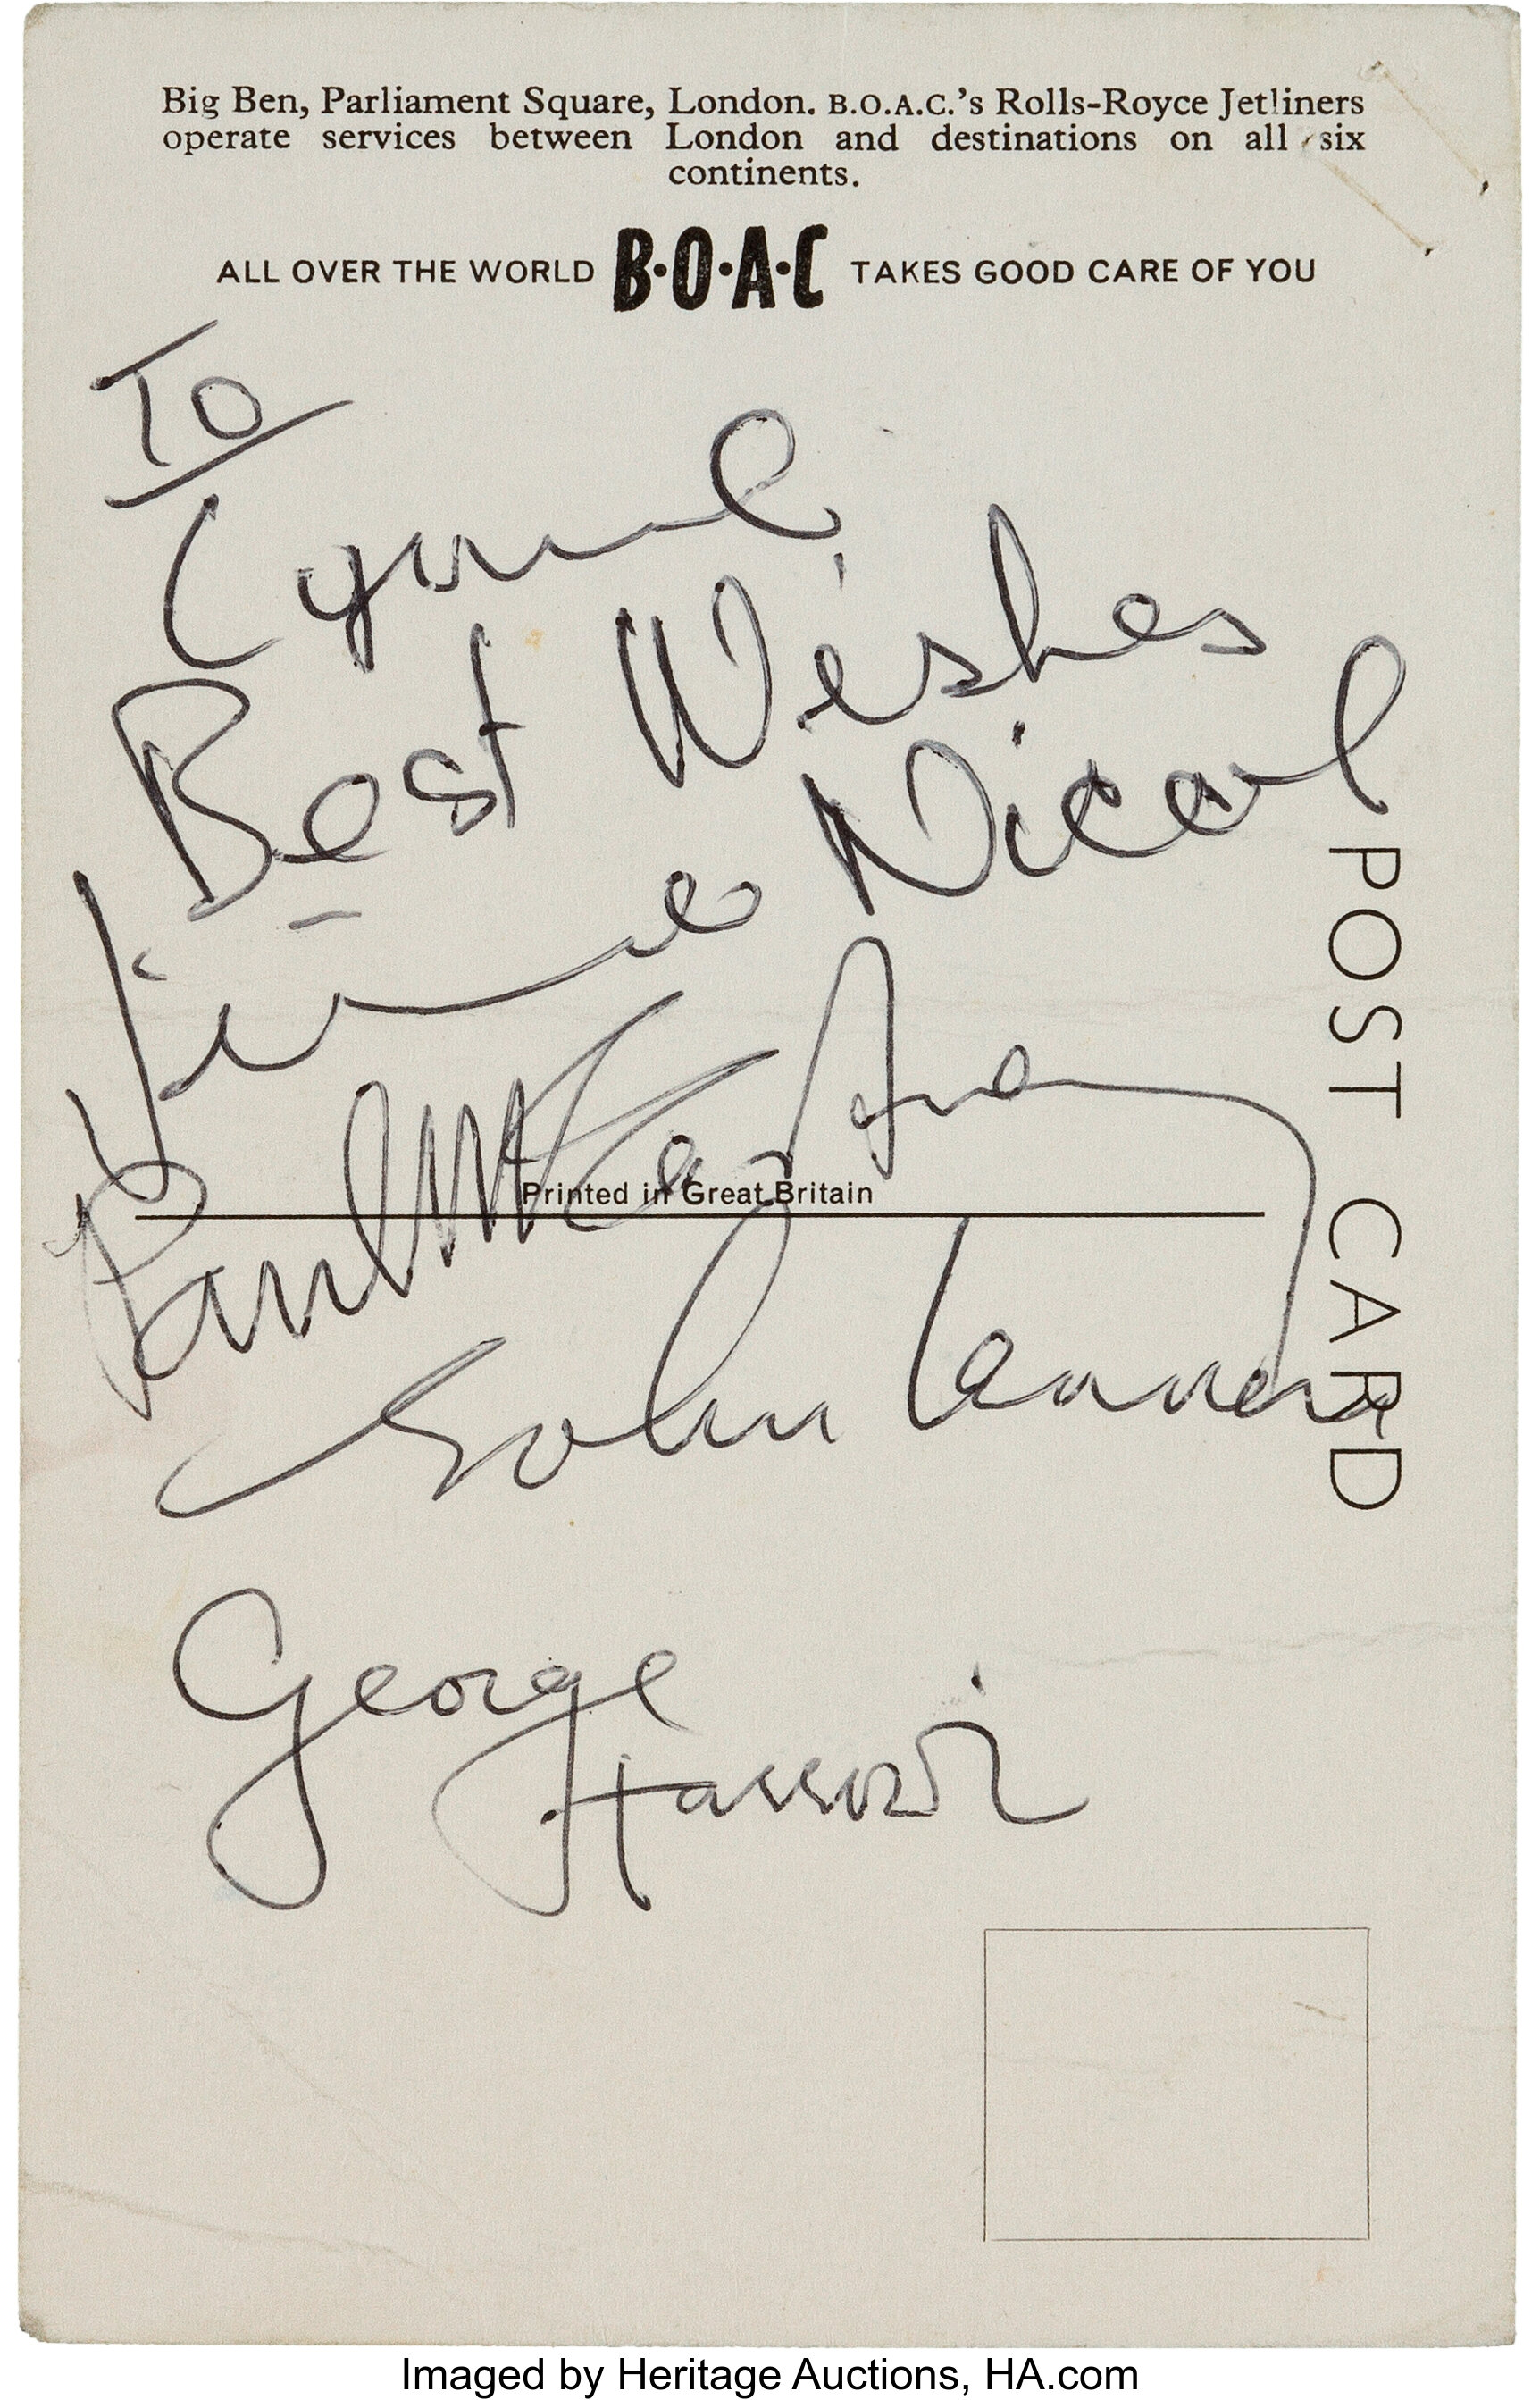 Big Ben, Parliament Square, London. B.O.A.C.'s Rolls-Royce Jetliners
operate services between London and destinations on all six
continents.
ALL OVER THE WORLD B·O·A·C TAKES GOOD CARE OF YOU
To
Best Wishes
Jimmie Nicol
Paul McCartney
Printed in Great Britain
John Lennon
George
Harrison
POST CARD
Imaged by Heritage Auctions, HA.com